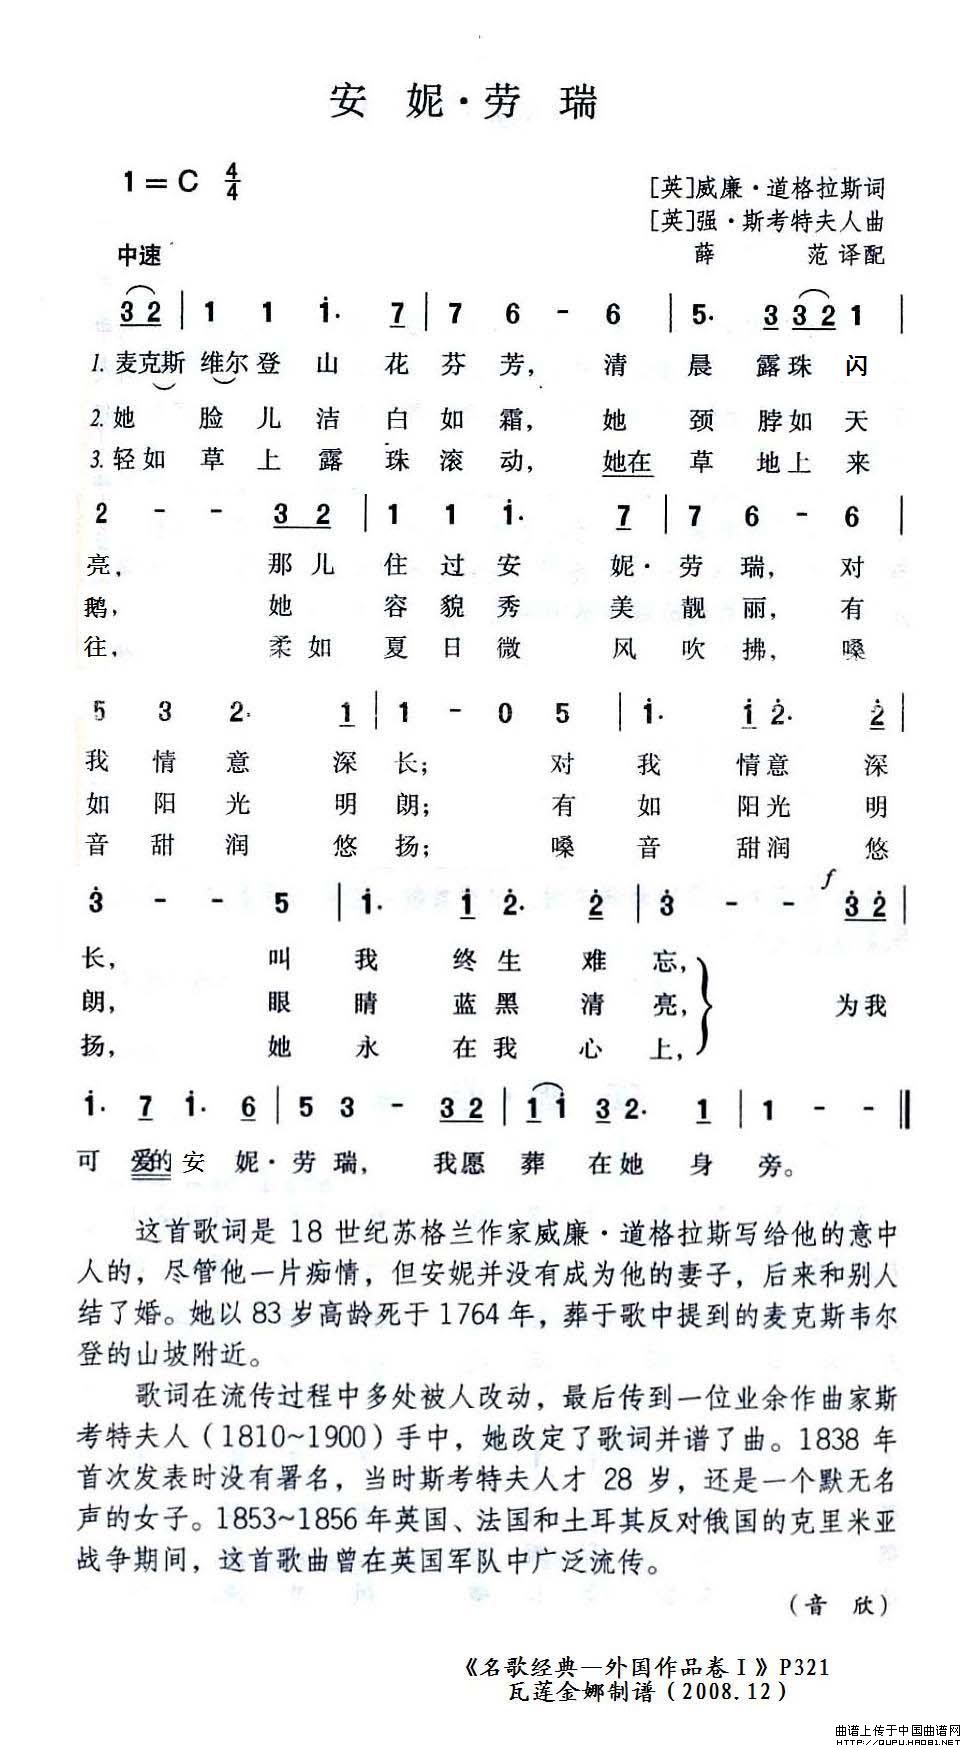 安 妮·劳 瑞
1=C 4/4
[英]威廉·道格拉斯词
[英]强·斯考特夫人曲
中速
薛 范 译配
3 2 | 1 1 i· 7 | 7 6 - 6 | 5· 3 3 2 1 |
1. 麦克斯 维尔 登 山 花 芬 芳, 清 晨 露 珠 闪
2. 她 脸 儿 洁 白 如 霜, 她 颈 脖 如 天
3. 轻 如 草 上 露 珠 滚 动, 她在 草 地 上 来
2 - - 3 2 | 1 1 i· 7 | 7 6 - 6 |
亮, 那 儿 住 过 安 妮· 劳 瑞, 对
鹅, 她 容 貌 秀 美 靓 丽, 有
往, 柔 如 夏 日 微 风 吹 拂, 嗓
5 3 2· 1 | 1 - 0 5 | i· i 2̇· 2̇ |
我 情 意 深 长; 对 我 情 意 深
如 阳 光 明 朗; 有 如 阳 光 明
音 甜 润 悠 扬; 嗓 音 甜 润 悠
f
3̇ - - 5 | i· i 2̇· 2̇ | 3̇ - - 3̇ 2̇ |
长, 叫 我 终 生 难 忘,
朗, 眼 睛 蓝 黑 清 亮, 为 我
扬, 她 永 在 我 心 上,
i· 7 i· 6 | 5 3 - 3 2 | 1 i 3 2· 1 | 1 - - ‖
可 爱的 安 妮· 劳 瑞, 我 愿 葬 在 她 身 旁。
这首歌词是 18 世纪苏格兰作家威廉·道格拉斯写给他的意中
人的，尽管他一片痴情，但安妮并没有成为他的妻子，后来和别人
结了婚。她以 83 岁高龄死于 1764 年，葬于歌中提到的麦克斯韦尔
登的山坡附近。
歌词在流传过程中多处被人改动，最后传到一位业余作曲家斯
考特夫人（1810~1900）手中，她改定了歌词并谱了曲。1838 年
首次发表时没有署名，当时斯考特夫人才 28 岁，还是一个默无名
声的女子。1853~1856 年英国、法国和土耳其反对俄国的克里米亚
战争期间，这首歌曲曾在英国军队中广泛流传。
（音 欣）
《名歌经典—外国作品卷Ⅰ》P321
瓦莲金娜制谱（2008.12）
曲谱上传于中国曲谱网
HTTP://QUPU.HAO81.NET